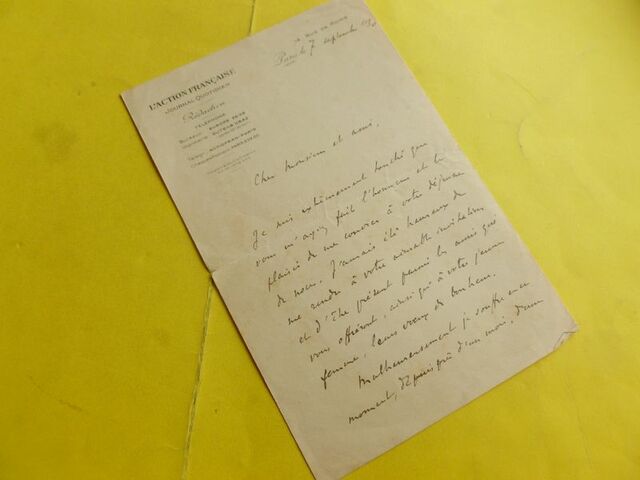 L'ACTION FRANÇAISE
JOURNAL QUOTIDIEN
Rédaction
TÉLÉPHONE
RUE DE ROME
Paris le 7 septembre
Cher Monsieur et ami,
Je suis extrêmement touché que
vous m'ayez fait l'honneur et le
plaisir de me convier à votre déjeuner
de noces. J'aurais été heureux de
me rendre à votre aimable invitation
et d'être présent parmi les amis qui
vous offriront, ainsi qu'à votre jeune
femme, leurs vœux de bonheur.
Malheureusement je souffre en ce
moment, depuis près d'un mois, d'une